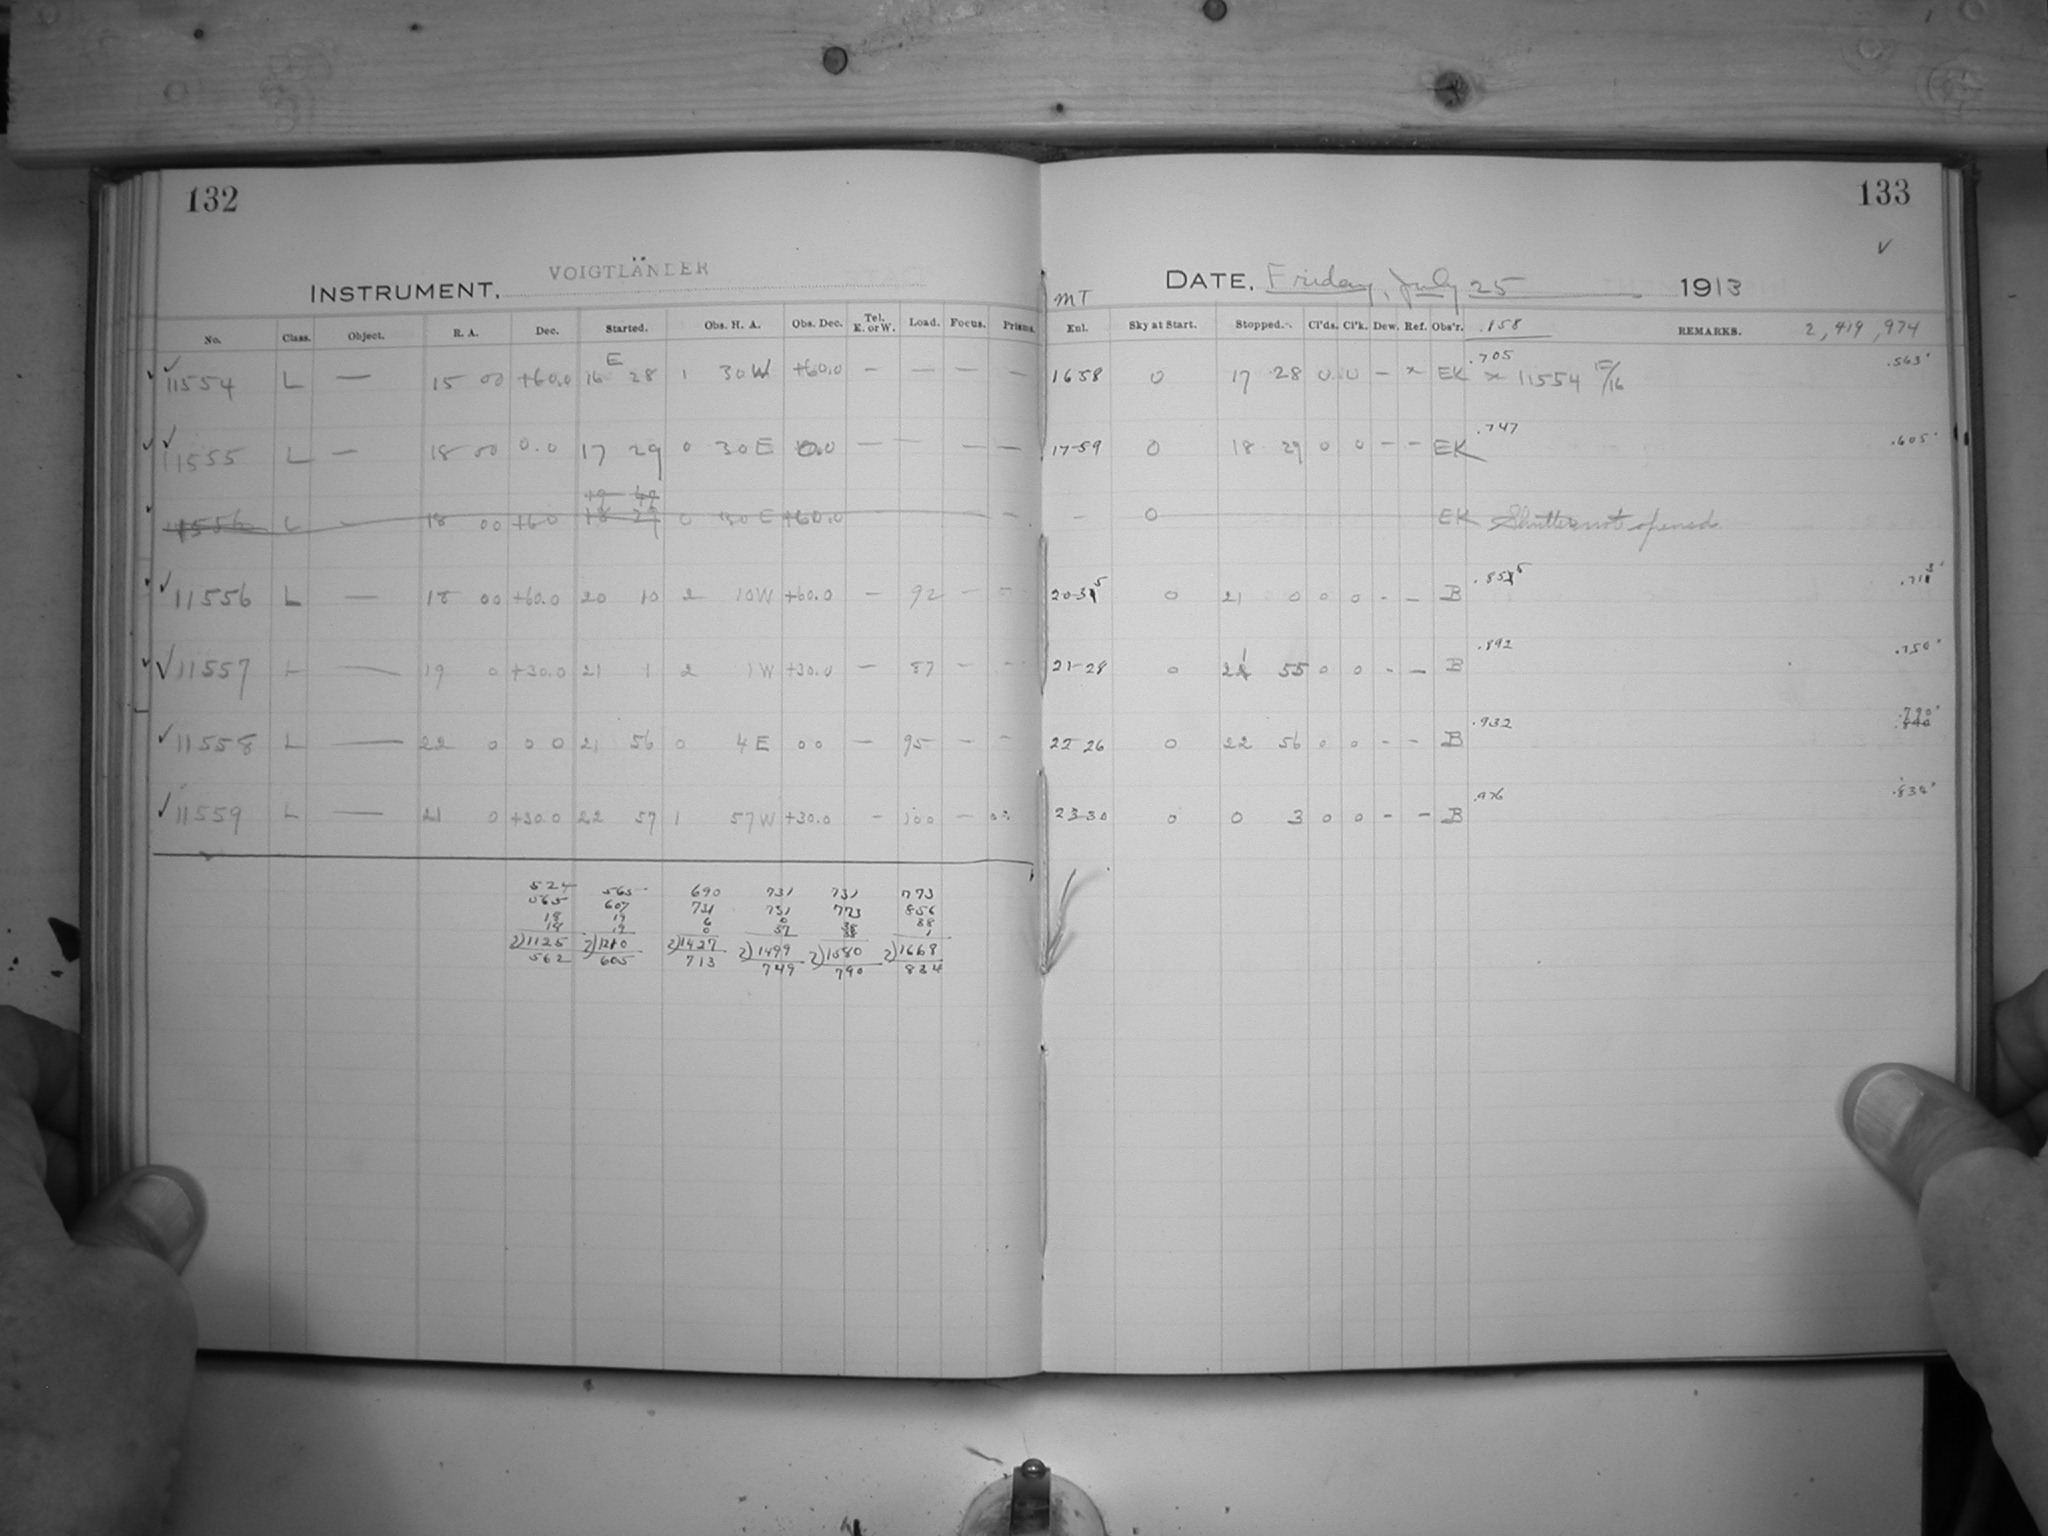 132
INSTRUMENT, VOIGTLÄNDER
No. Class. Object. R. A. Dec. Started. Obs. H. A. Obs. Dec. Tel. E. or W. Load. Focus. Prisms.
E
11554 L — 15 00 +60.0 16 28 1 30 W +60.0 — — — —
11555 L — 18 00 0.0 17 29 0 30 E 0.0 — — — —
19 49
11556 L — 18 00 +60 18 29 0 30 E +60.0 — —
11556 L — 18 00 +60.0 20 10 2 10 W +60.0 — 92 — —
11557 L — 19 0 +30.0 21 1 2 1 W +30.0 — 87 — —
11558 L — 22 0 0 0 21 56 0 4 E 0 0 — 95 — —
11559 L — 21 0 +30.0 22 57 1 57 W +30.0 — 100 —
524 565 690 731 731 773
565 607 731 731 773 856
18 19 6 0 38 38
18 19 0 37 38 1
2)1125 2)1210 2)1427 2)1499 2)1580 2)1668
562 605 713 749 790 834
133
MT
DATE, Friday, July 25 1913
Enl. Sky at Start. Stopped. Cl'ds. Cl'k. Dew. Ref. Obs'r. .158 REMARKS. 2,419,974
16 58 0 17 28 0 0 — x EK .705 x 11554 15/16 .563
17-59 0 18 29 0 0 — — EK .747 .605
— 0 EK Shutter not opened
20-35 0 21 0 0 0 - — B .855 .713
21-28 0 21 55 0 0 - — B .892 .750
22 26 0 22 56 0 0 - - B .932 .790
23-30 0 0 3 0 0 - - B .976 .834